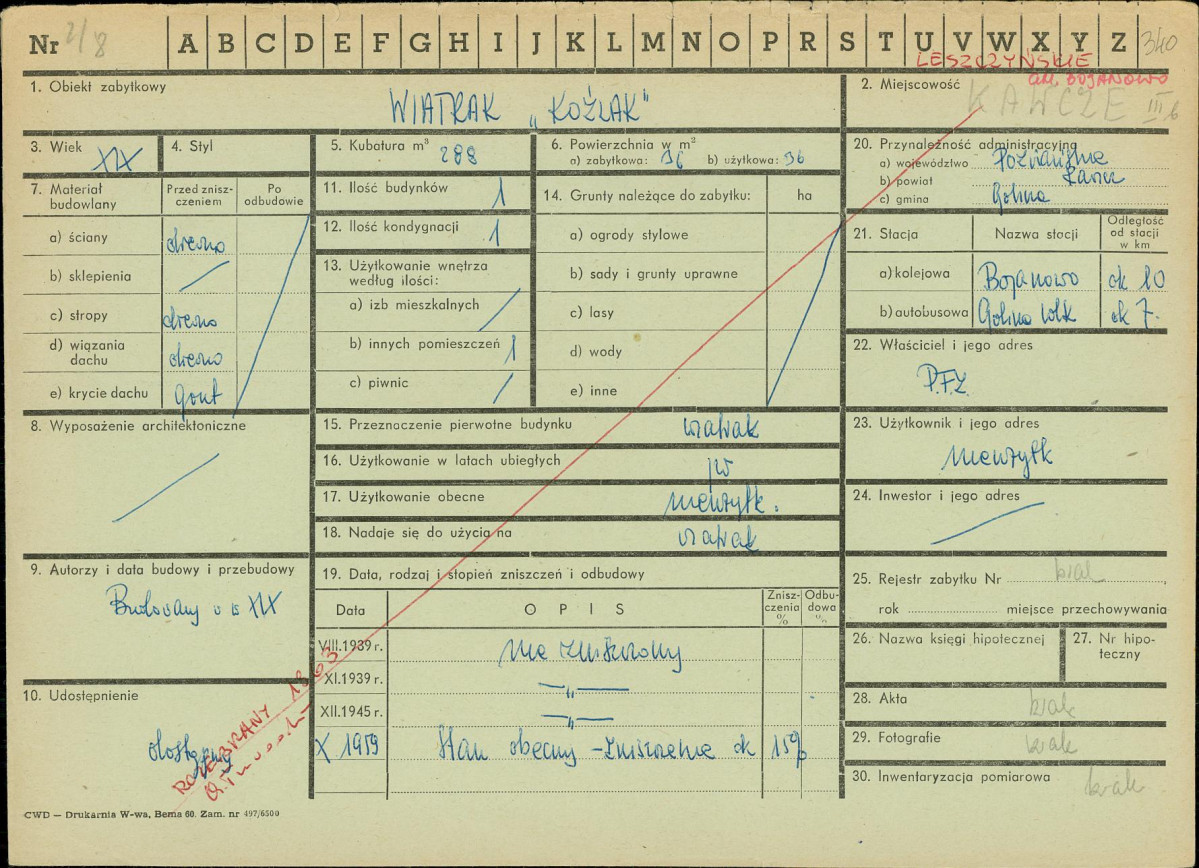 Nr 2/8 A B C D E F G H I J K L M N O P R S T U V W X Y Z 340
LESZCZYŃSKIE
GM. BOJANOWO
1. Obiekt zabytkowy
WIATRAK „KOŹLAK"
2. Miejscowość
KAWCZE III b
3. Wiek XIX
4. Styl
5. Kubatura m³ 288
6. Powierzchnia w m²
a) zabytkowa: 36 b) użytkowa: 36
20. Przynależność administracyjna
a) województwo Poznańskie
b) powiat Rawicz
c) gmina Golina
7. Materiał budowlany
Przed zniszczeniem
Po odbudowie
a) ściany drewno
b) sklepienia
c) stropy drewno
d) wiązania dachu drewno
e) krycie dachu gont
11. Ilość budynków 1
12. Ilość kondygnacji 1
13. Użytkowanie wnętrza
według ilości:
a) izb mieszkalnych
b) innych pomieszczeń 1
c) piwnic
14. Grunty należące do zabytku: ha
a) ogrody stylowe
b) sady i grunty uprawne
c) lasy
d) wody
e) inne
21. Stacja Nazwa stacji Odległość od stacji w km
a) kolejowa Bojanowo ok 10
b) autobusowa Golina Wlk ok 7.
22. Właściciel i jego adres
P.F.Z.
8. Wyposażenie architektoniczne
15. Przeznaczenie pierwotne budynku wiatrak
16. Użytkowanie w latach ubiegłych jw
17. Użytkowanie obecne nieużytk.
18. Nadaje się do użycia na wiatrak
23. Użytkownik i jego adres
nieużytk
24. Inwestor i jego adres
9. Autorzy i data budowy i przebudowy
Budowany w XIX
19. Data, rodzaj i stopień zniszczeń i odbudowy
Data OPIS Zniszczenia % Odbudowa %
VIII.1939 r. nie zniszczony
XI.1939 r. — „ —
XII.1945 r. — „ —
X 1959 Stan obecny - zniszczenie ok 15%
25. Rejestr zabytku Nr brak
rok miejsce przechowywania
26. Nazwa księgi hipotecznej
27. Nr hipoteczny
28. Akta brak
29. Fotografie brak
30. Inwentaryzacja pomiarowa brak
10. Udostępnienie
dostępny
ROZEBRANY 1963
CWD — Drukarnia W-wa, Bema 60. Zam. nr 497/6500